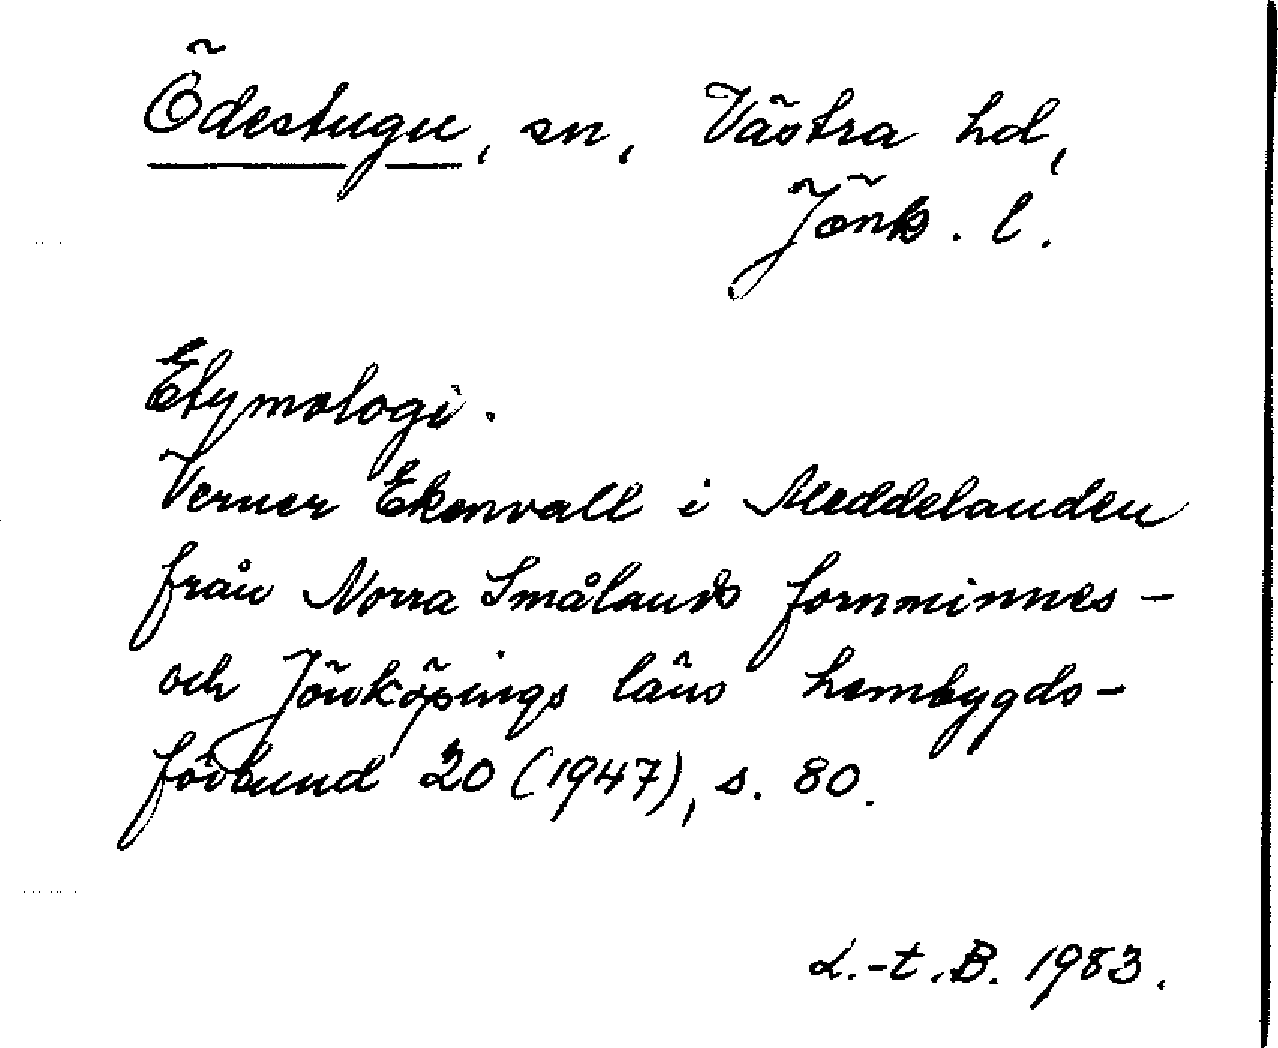 Ödestugu, sn, Västra hd,
Jönk. l.
Etymologi.
Verner Ekenvall i Meddelanden
från Norra Smålands fornminnes-
och Jönköpings läns hembygds-
förbund 20 (1947), s. 80.
L.-t. B. 1983.